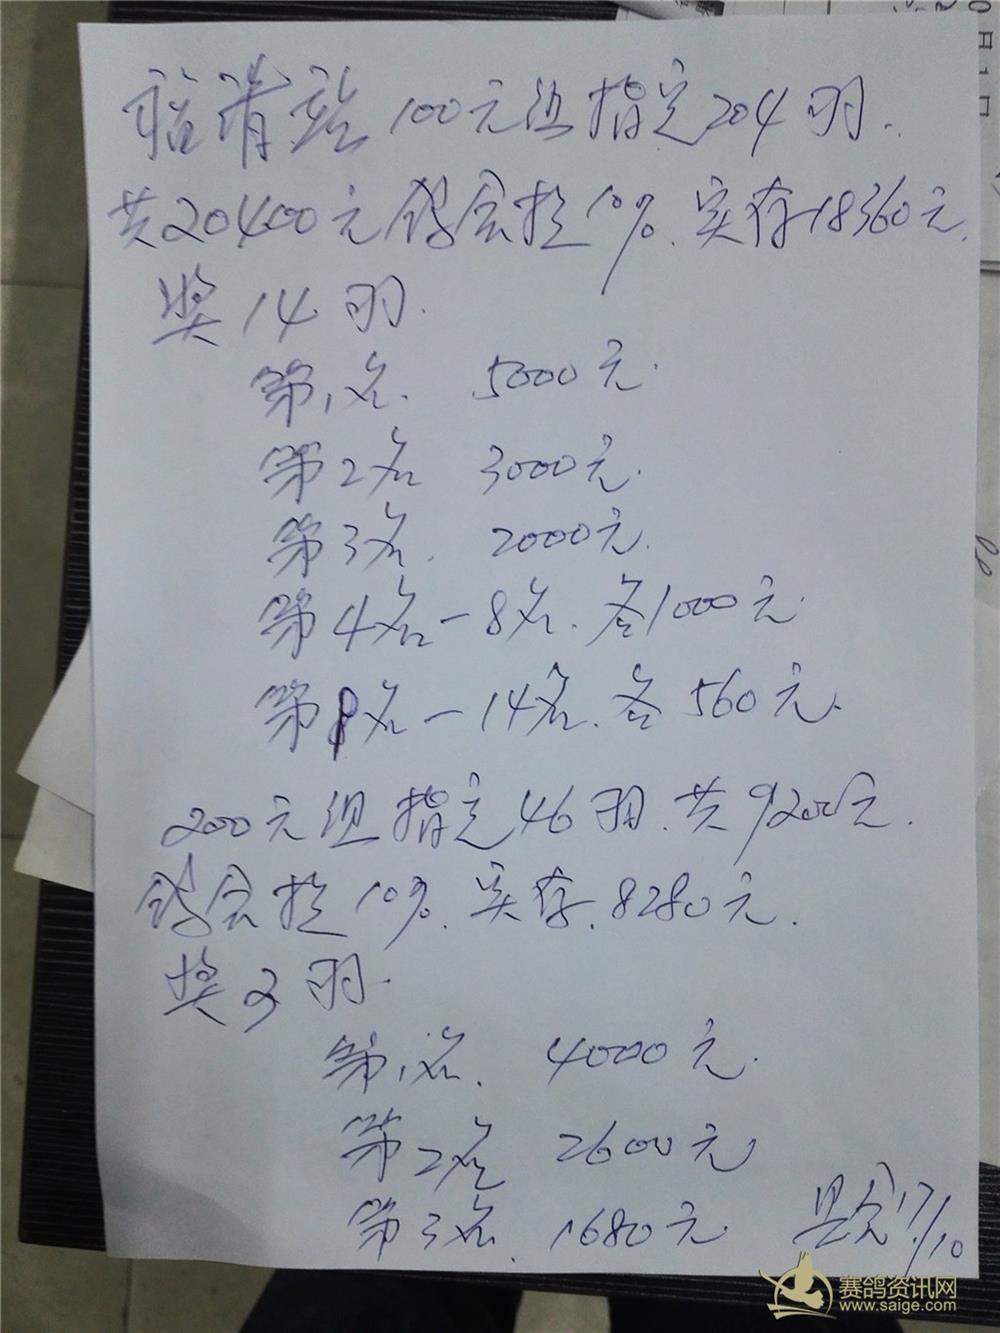 临清站100元组指定204羽.
共20400元鸽会扣10%.实存18360元.
奖14羽.
第1名. 5000元.
第2名 3000元.
第3名. 2000元.
第4名-8名.各1000元.
第9名-14名.各560元.
200元组指定46羽.共9200元.
鸽会扣10%.实存.8280元.
奖3羽.
第1名. 4000元.
第2名 2600元
第3名. 1680元
17/10
赛鸽资讯网
www.saige.com